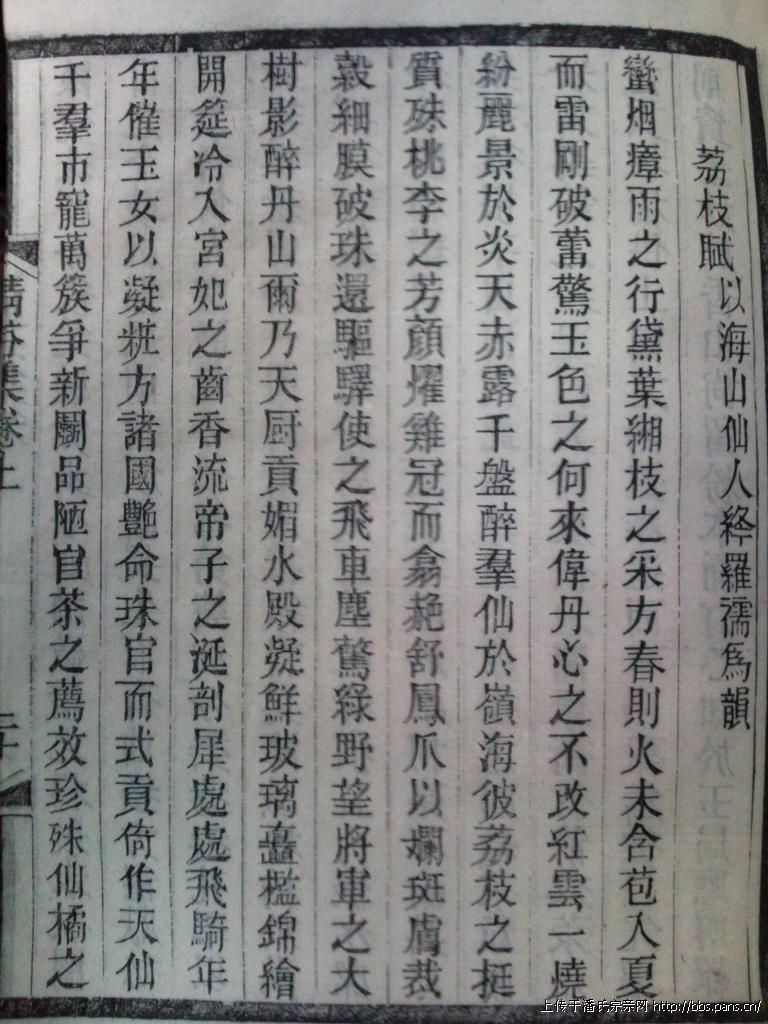 荔枝賦以海山仙人絳羅襦為韻
蠻烟瘴雨之行黛葉緗枝之采方春則火未含苞入夏
而雷剛破蕾驚玉色之何來偉丹心之不改紅雲一燒
紛麗景於炎天赤露千盤醉羣仙於嶺海彼荔枝之挺
質殊桃李之芳顏燿雞冠而翕赩舒鳳爪以斕斑膚裁
縠細膜破珠還驅驛使之飛車塵驚綠野望將軍之大
樹影醉丹山爾乃天厨貢媚水殿凝鮮玻璃矗檻錦繪
開筵冷入宮妃之齒香流帝子之涎剖犀處處飛騎年
年催玉女以凝粧方諸國艷命珠官而式貢倚作天仙
千羣市寵萬簇爭新鬭品陋官茶之薦效珍殊仙橘之
清芬集卷上
二十
上传于潘氏宗亲网 http://bbs.pans.cn/